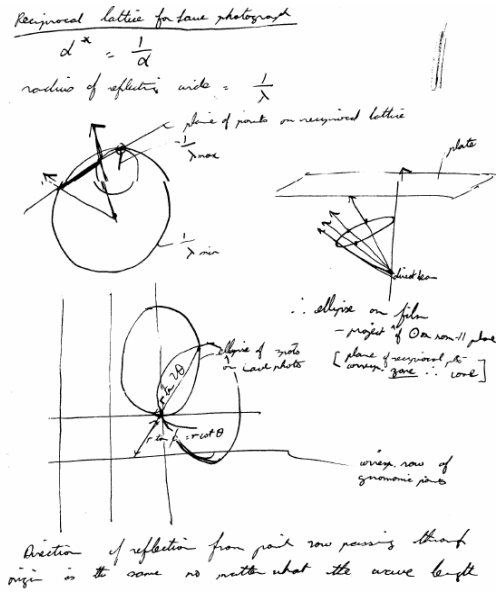 Reciprocal lattice for Laue photograph
d* = 1/d
radius of reflecting circle = 1/λ
plane of points on reciprocal lattice
1/λ max
1/λ min
plate
direct beam
∴ ellipse on film
- project of O on non-|| plane
[plane of reciprocal pts
corresp. zone ∴ cone]
ellipse of spots
on Laue photo
r tan 2θ
= r cot θ
corresp row of
gnomonic points
Direction of reflection from point row passing through
origin is the same no matter what the wave length